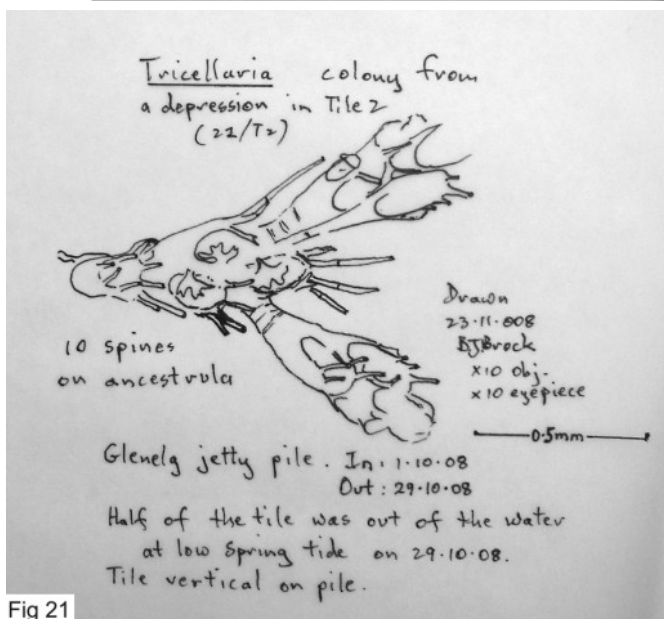 Tricellaria colony from
a depression in Tile 2
(21/T2)
10 spines
on ancestrula
Drawn
23·11·008
BJBrock
x10 obj.
x10 eyepiece
0.5mm
Glenelg jetty pile. In: 1·10·08
Out: 29·10·08
Half of the tile was out of the water
at low spring tide on 29·10·08.
Tile vertical on pile.
Fig 21